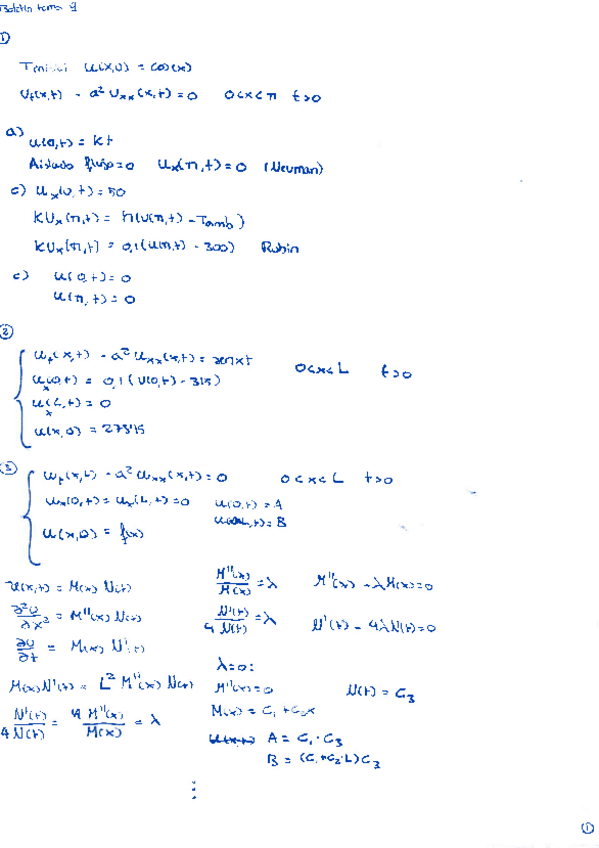 Boletín tema 9
①
u(x,0) = cos(x)
u_t(x,t) - a² u_xx(x,t) = 0   0<x<π   t>0
a)
u(0,t) = Kt
Aislado flujo=0   u_x(π,t) = 0   (Neuman)
c) u_x(0,t) = 50
K u_x(π,t) = h(u(π,t) - Tamb)
K u_x(π,t) = 0,1(u(π,t) - 300)   Robin
c)   u(0,t) = 0
u(π,t) = 0
②
u_t(x,t) - a² u_xx(x,t) =   0<x<L   t>0
u_x(0,t) = 0,1(u(0,t) - 315)
u_x(L,t) = 0
u(x,0) = 273'15
③
u_t(x,t) - a² u_xx(x,t) = 0   0<x<L   t>0
u_x(0,t) = u_x(L,t) = 0   u(0,t) = A
u(L,t) = B
u(x,0) = f(x)
u(x,t) = M(x) N(t)
∂²u/∂x² = M''(x) N(t)
∂u/∂t = M(x) N'(t)
M(x) N'(t) = L² M''(x) N(t)
N'(t)/4N(t) = 4 M''(x)/M(x) = λ
M''(x)/M(x) = λ   M''(x) - λM(x) = 0
N'(t)/4 N(t) = λ   N'(t) - 4λN(t) = 0
λ=0:
M''(x) = 0   N(t) = C₃
M(x) = C₁ + C₂x
A = C₁·C₃
B = (C₁+C₂·L)C₃
⋮
①